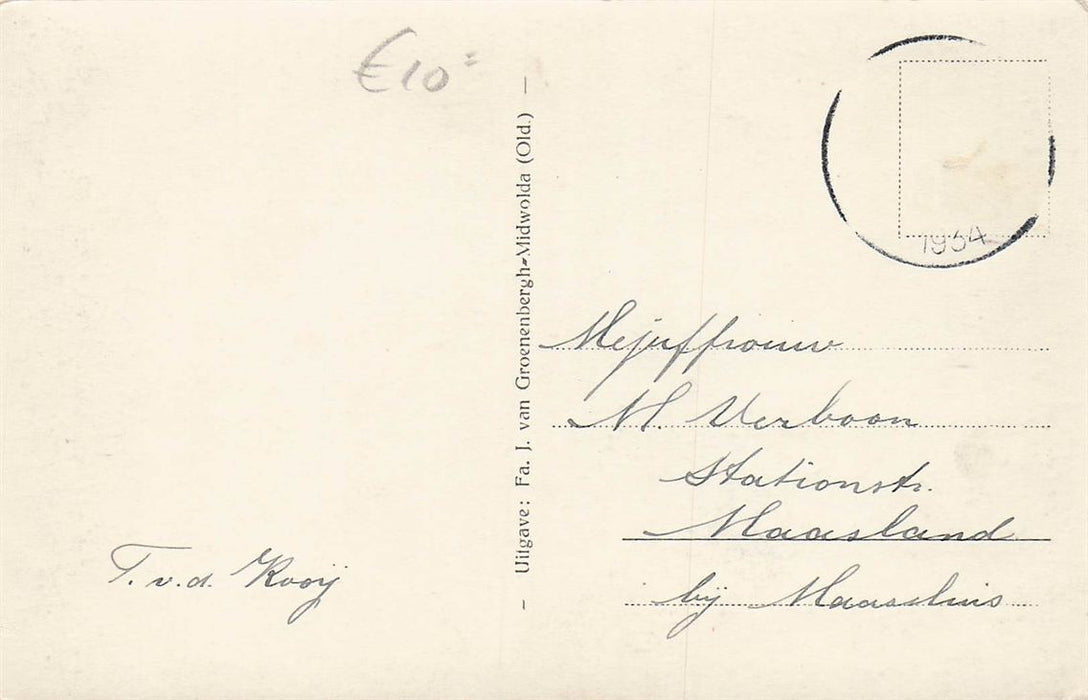 €10=
1934
Uitgave: Fa. J. van Groenenbergh-Midwolda (Old.)
Mejuffrouw
M. Verboon
Stationstr.
Maasland
bij Maassluis
T. v. d. Kooij